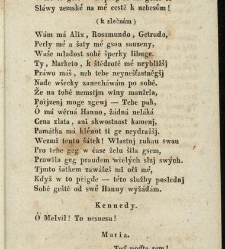 Sláwy zemské na mé cestě k nebesům!
(k slečnám)
Wám má Alix, Rosamundo, Getrudo,
Perly mé a šaty mé gsau sauzeny,
Waše mladost sobě šperky obljbuge.
Ty, Marketo, k štědrotě mé neybližšj
Práwo máš, nub tebe neyneššťastněgšj
Nade wšecky zanechárám po sobě.
Že na tobě nemstjm winy manžela,
Pojjzenj moge zgewj — Tebe pak,
O má wěrná Hanno, žádná neláká
Cena zlata, ani skwostnost kamenj,
Památka má klénot ti ge neydražšj.
Wezmi tento šátek! Wlastnj rukau swau
Pro tebe geg w čase želu šila gsem,
Prowila geg praudem wřelých slzj swých.
Tjmto šátkem zawážeš mi oči mé,
Když w to přigde — této služby poslednj
Sobě geště od swé Hanny wyžádám.
Kennedy.
Ó Melvil! To nesnesu!
Maria.